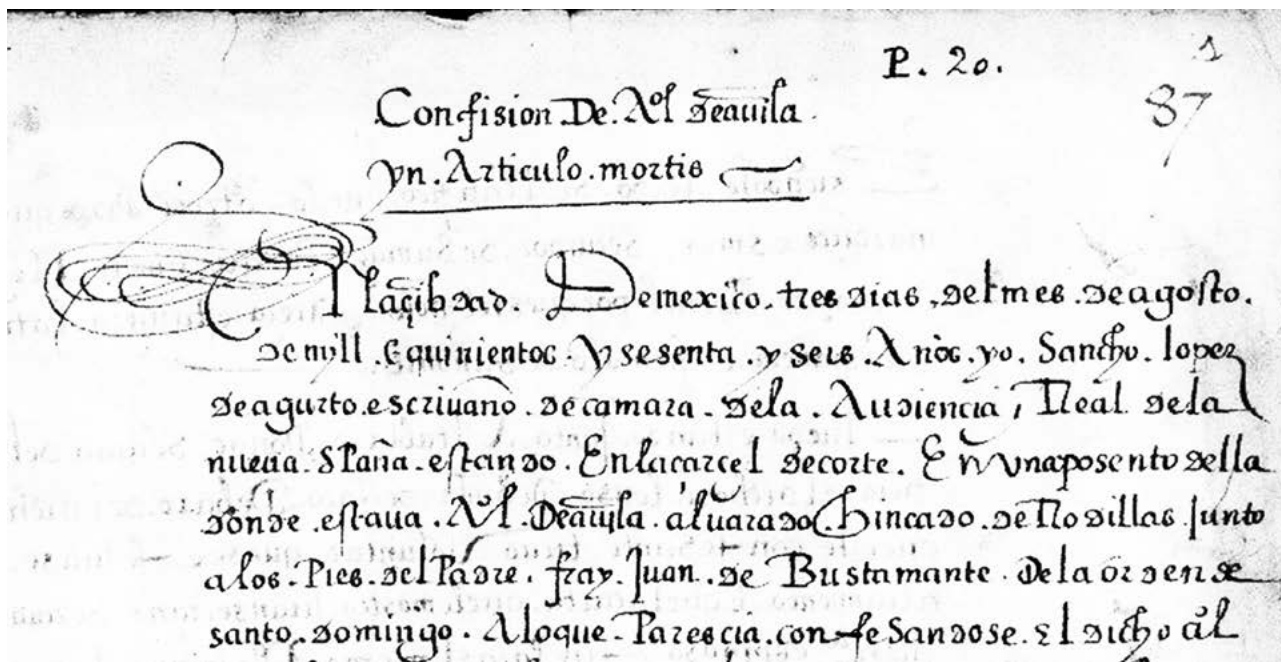 P. 20.
1
87
Confision De. Aol deauila.
yn. Articulo. mortis
En laçibdad Demexico. tres dias. delmes. de agosto.
de mill. E quinientos. y sesenta. y seis. Años. yo. Sancho. lopez
deagurto. escriuano. decamara. dela. Audiencia, Real dela
nueua. Spaña. estando. En lacarcel decorte. En vnaposento della
donde. estaua. Al. Deauila. aluarado. hincado. de Rodillas. Junto
alos. Pies. del Padre. fray. Juan. de Bustamante. dela orden de
santo. domingo. Aloque. Parescia. confesandose. El dicho al